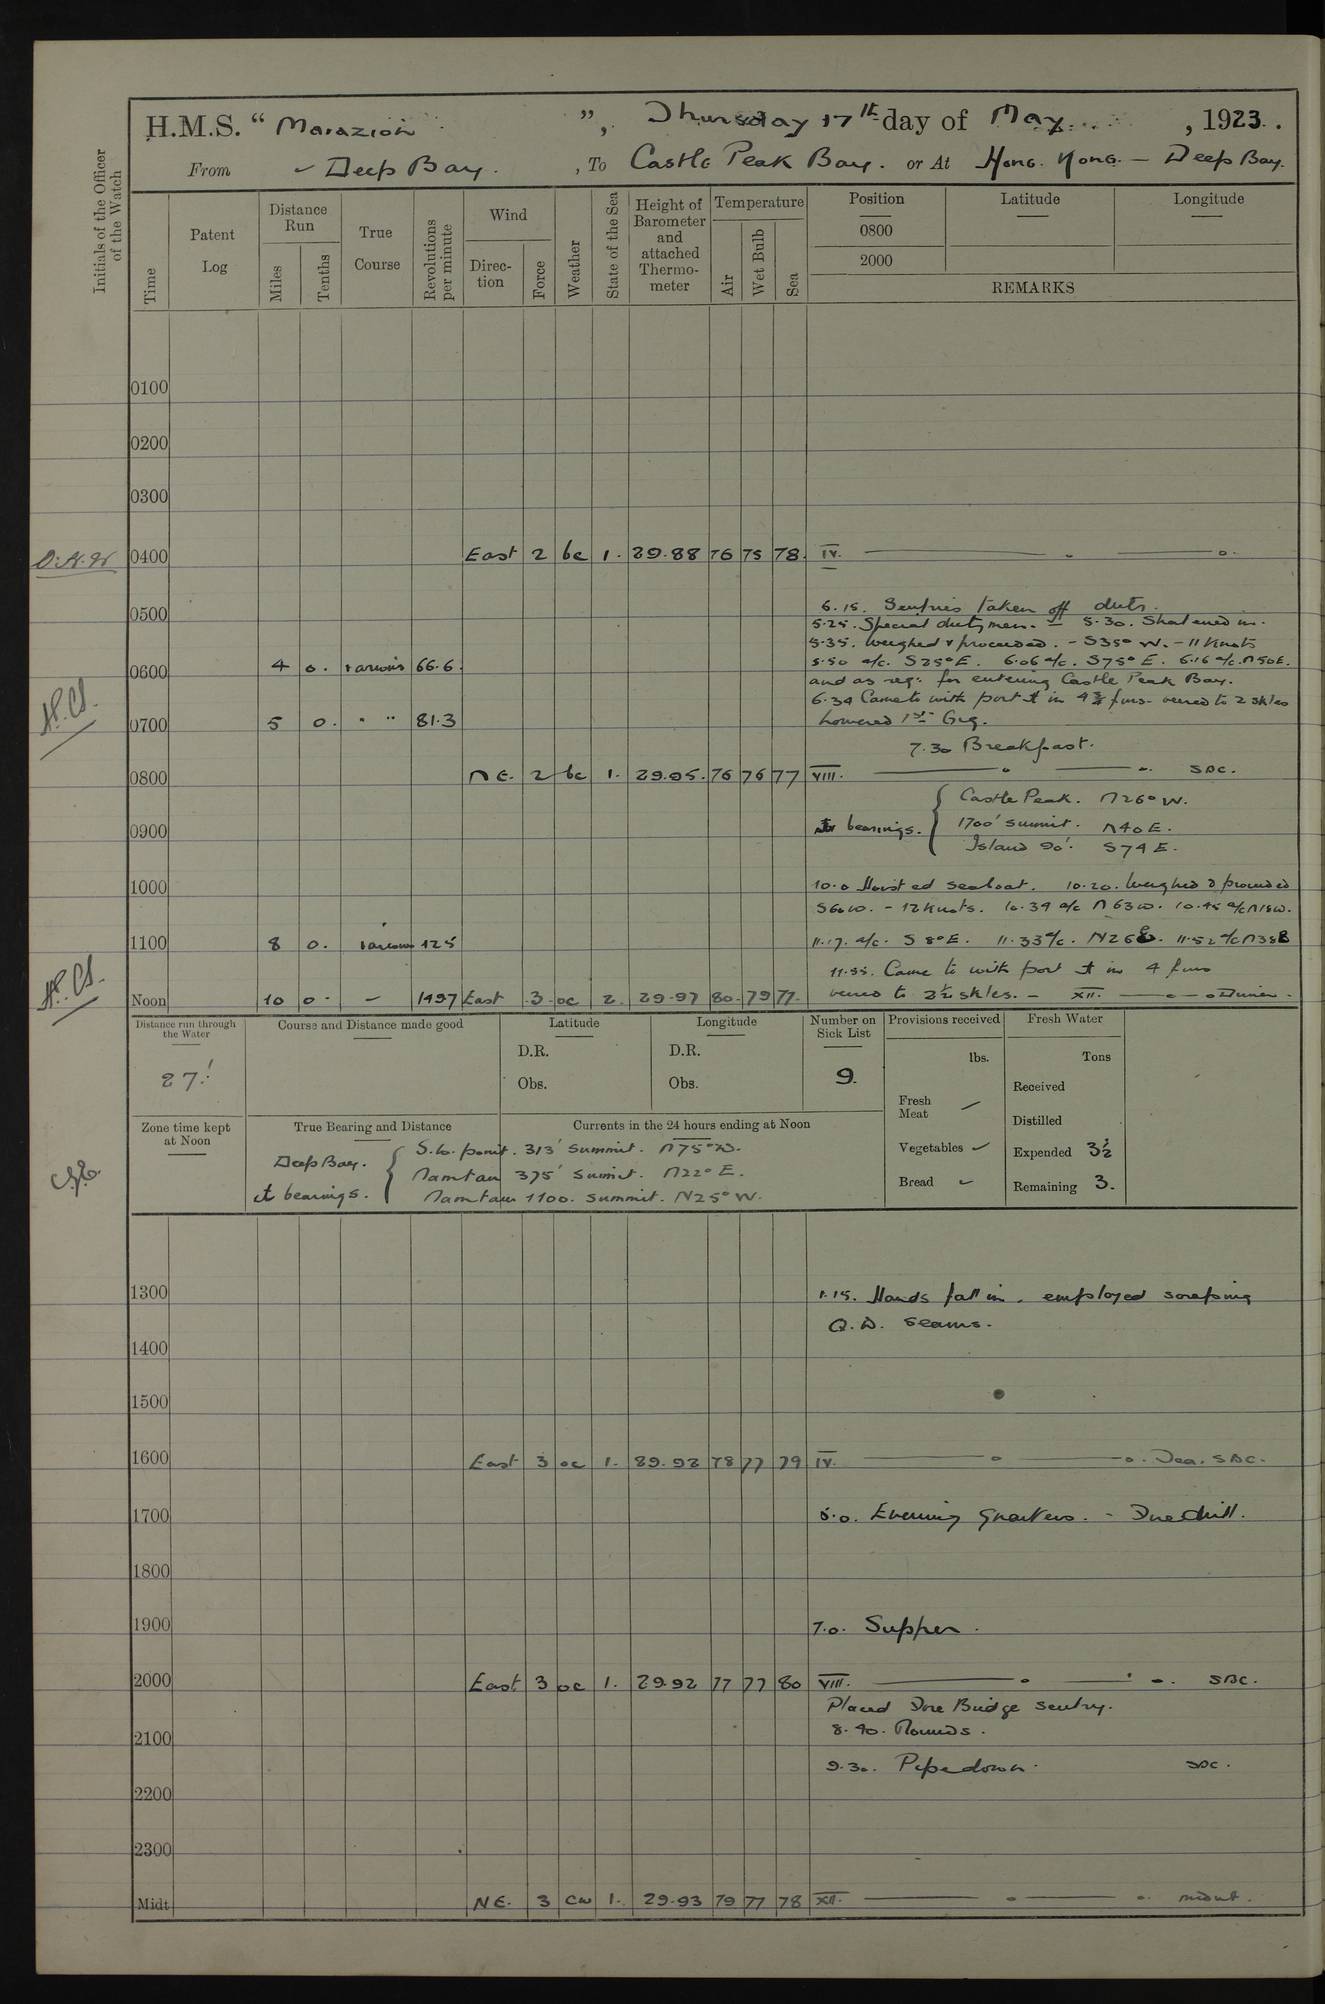 H.M.S. “ Marazion ”, Thursday 17th day of May , 1923.
From Deep Bay. , To Castle Peak Bay. or At Hong. Kong. — Deep Bay.
Initials of the Officer of the Watch
Time
Patent Log
Distance Run
Miles
Tenths
True Course
Revolutions per minute
Wind
Direction
Force
Weather
State of the Sea
Height of Barometer and attached Thermometer
Temperature
Air
Wet Bulb
Sea
Position
0800
2000
Latitude
Longitude
REMARKS
0100
0200
0300
0400 East 2 bc 1. 29.88 76 75 78. IV.
0500 6.15. Sentries taken off duty.
5.25. Special dutymen. – 5.30. Shortened in.
5.35. Weighed & proceeded. – S35° W. – 11 Knots
0600 4 0. various 66.6. 5.50 a/c. S25°E. 6.06 a/c. S75° E. 6.16 a/c. N50E.
and as req: for entering Castle Peak Bay.
6.34 Came to with port in 4¾ fms. veered to 2 skles
0700 5 0. " " 81.3 Lowered 1st Gig.
7.30 Breakfast.
0800 NE. 2 bc 1. 29.95. 76 76 77 VIII. SDC.
Castle Peak. N26° W.
0900 bearings. 1700' summit. N40 E.
Island 90'. S74 E.
1000 10.0 Hoisted seaboat. 10.20. Weighed & proceeded
S60W. – 12 Knots. 10.39 a/c N63W. 10.45 a/c N18W.
1100 8 0. various 125 11.17. a/c. S 8°E. 11.33 a/c. N26E. 11.52 a/c N38E
11.55. Came to with port in 4 fms
Noon 10 0. – 1497 East 3 oc 2. 29.97 80. 79 77. veered to 2½ skles. – XII. Dinner.
Distance run through the Water
27.'
Course and Distance made good
Latitude
D.R.
Obs.
Longitude
D.R.
Obs.
Number on Sick List
9.
Provisions received
lbs.
Fresh Meat —
Vegetables
Bread
Fresh Water
Tons
Received
Distilled
Expended 3½
Remaining 3.
Zone time kept at Noon
True Bearing and Distance
Currents in the 24 hours ending at Noon
Deep Bay.
bearings.
S.W. point. 313' summit. N75°W.
Namtau 375' summit. N22° E.
Namtau 1100. summit. N25° W.
1300 1.15. Hands fall in. employed scraping
Q.D. seams.
1400
1500
1600 East 3 oc 1. 29.92 78 77 79 IV. Tea. SDC.
1700 5.0. Evening Quarters. – Fire drill.
1800
1900 7.0. Supper.
2000 East 3 oc 1. 29.92 77 77 80 VIII. SDC.
Placed Fore Bridge sentry.
2100 8.40. Rounds.
9.30. Pipe down. SDC.
2200
2300
Midt NE. 3 cw 1. 29.93 79 77 78 XII. midnt.